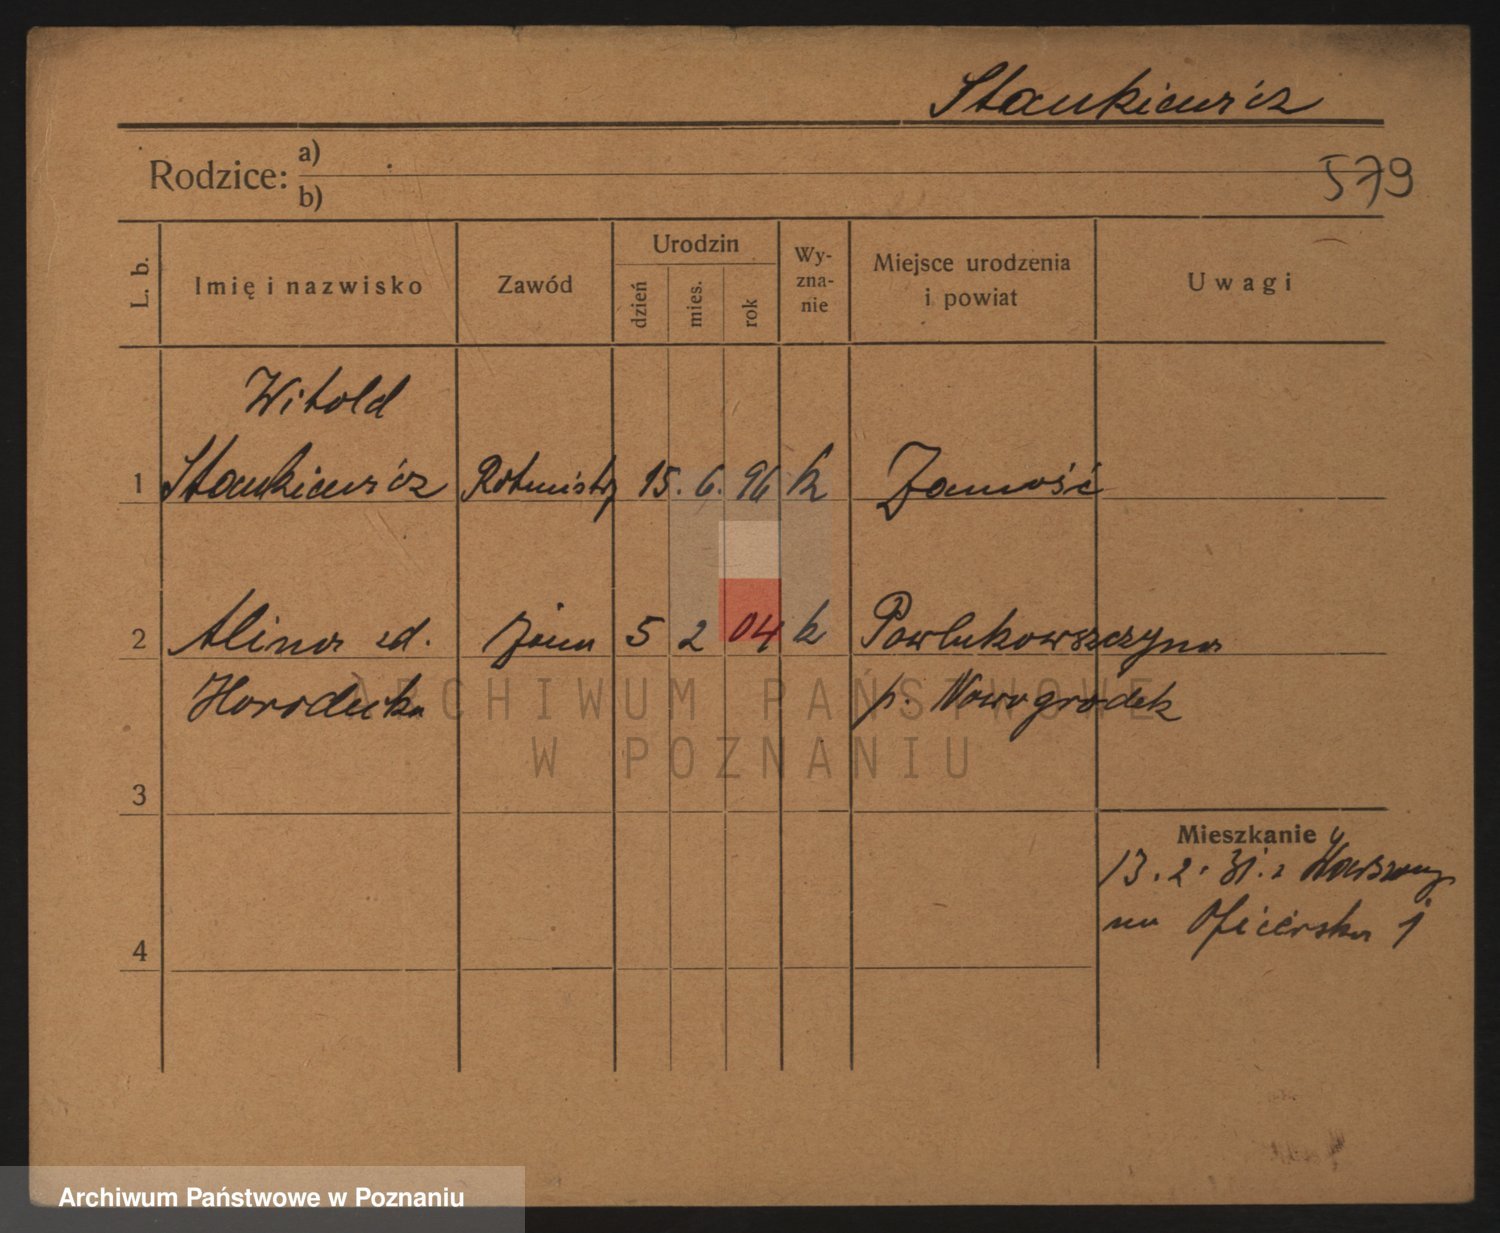 Stankiewicz
Rodzice: a)
b)
579
L. b.
Imię i nazwisko
Zawód
Urodzin
dzień
mies.
rok
Wy-
zna-
nie
Miejsce urodzenia
i powiat
Uwagi
Witold
1 Stankiewicz Rotmistrz 15. 6. 96 k Zamość
2 Alina zd. żona 5 2 04 k Pawlukowszczyna
Horodecka p. Nowogrodek
3
Mieszkanie
13.2.31. z Warszawy
na Oficerska 1
4
ARCHIWUM PAŃSTWOWE
W POZNANIU
Archiwum Państwowe w Poznaniu